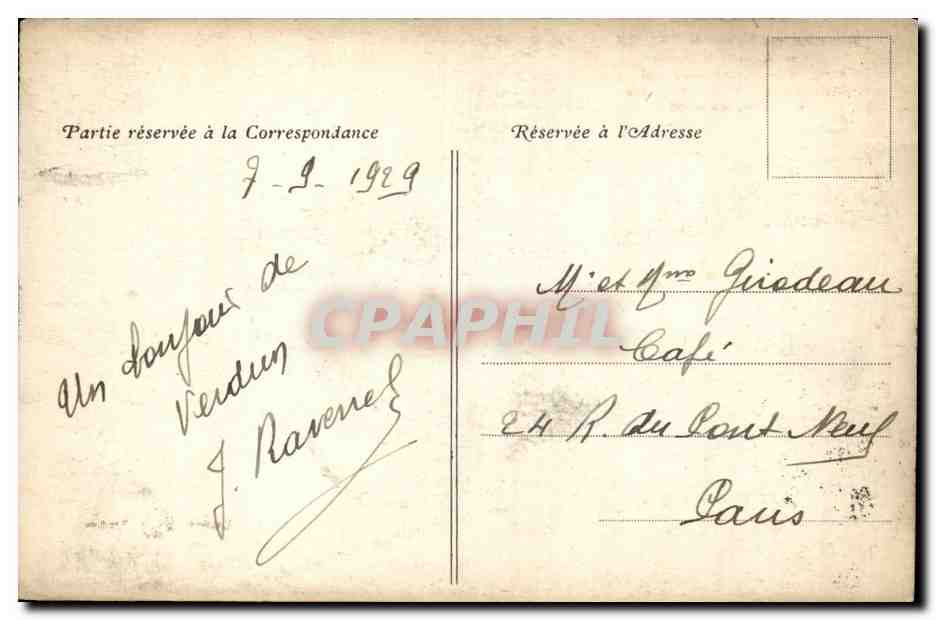 Partie réservée à la Correspondance
Réservée à l'Adresse
7-9-1929
Un bonjour de
Verdun
J. Ravenel
Mr et Mme Girodeau
Café
24 R. du Pont Neuf
Paris
CPAPHIL